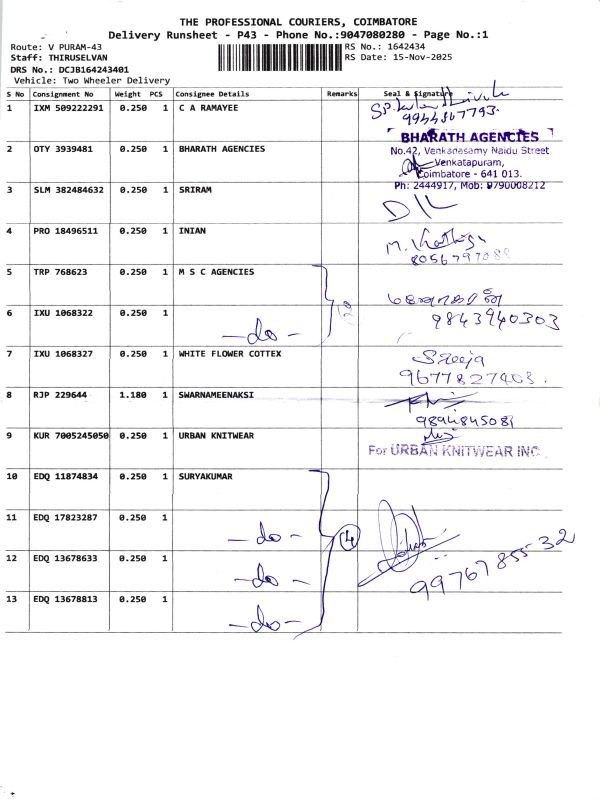 THE PROFESSIONAL COURIERS, COIMBATORE
Delivery Runsheet - P43 - Phone No.:9047080280 - Page No.:1
Route: V PURAM-43 RS No.: 1642434
Staff: THIRUSELVAN RS Date: 15-Nov-2025
DRS No.: DCJB164243401
Vehicle: Two Wheeler Delivery
S No Consignment No Weight PCS Consignee Details Remarks Seal & Signature
1 IXM 509222291 0.250 1 C A RAMAYEE
9944367793
BHARATH AGENCIES
2 OTY 3939481 0.250 1 BHARATH AGENCIES No.42, Venkanasamy Naidu Street
Venkatapuram,
Coimbatore - 641 013.
3 SLM 382484632 0.250 1 SRIRAM Ph: 2444917, Mob: 9790008212
4 PRO 18496511 0.250 1 INIAN
8056797088
5 TRP 768623 0.250 1 M S C AGENCIES
6 IXU 1068322 0.250 1 9843940303
-do-
7 IXU 1068327 0.250 1 WHITE FLOWER COTTEX Sreeja
9677827403.
8 RJP 229644 1.180 1 SWARNAMEENAKSI
9894845081
9 KUR 7005245050 0.250 1 URBAN KNITWEAR
For URBAN KNITWEAR INC.
10 EDQ 11874834 0.250 1 SURYAKUMAR
11 EDQ 17823287 0.250 1
-do- 4
12 EDQ 13678633 0.250 1 9976785532
-do-
13 EDQ 13678813 0.250 1
-do-